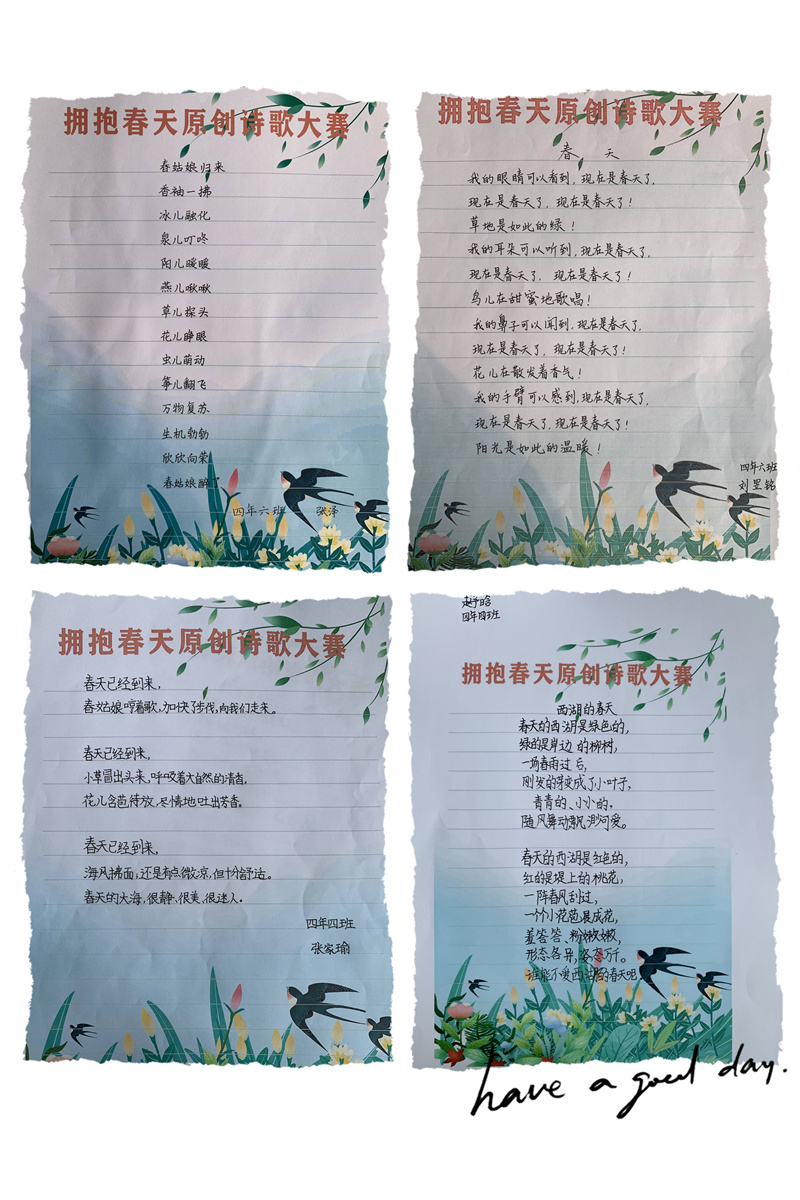 拥抱春天原创诗歌大赛
春姑娘归来
香袖一拂
冰儿融化
泉儿叮咚
阳儿暖暖
燕儿啾啾
草儿探头
花儿睁眼
虫儿萌动
筝儿翻飞
万物复苏
生机勃勃
欣欣向荣
春姑娘醉了
四年六班 张泽
拥抱春天原创诗歌大赛
春 天
我的眼睛可以看到,现在是春天了,
现在是春天了,现在是春天了!
草地是如此的绿!
我的耳朵可以听到,现在是春天了,
现在是春天了, 现在是春天了!
鸟儿在甜蜜地歌唱!
我的鼻子可以闻到,现在是春天了,
现在是春天了, 现在是春天了!
花儿在散发着香气!
我的手臂可以感到,现在是春天了,
现在是春天了,现在是春天了!
阳光是如此的温暖!
四年六班
刘昱铭
拥抱春天原创诗歌大赛
春天已经到来,
春姑娘哼着歌,加快了步伐,向我们走来。
春天已经到来,
小草冒出头来,呼吸着大自然的清香,
花儿含苞待放,尽情地吐出芳香。
春天已经到来,
海风拂面,还是有点微凉,但十分舒适。
春天的大海,很静、很美、很迷人。
四年四班
张家瑜
赵予晗
四年四班
拥抱春天原创诗歌大赛
西湖的春天
春天的西湖是绿色的,
绿的是岸边的柳树,
一场春雨过后,
刚发的芽变成了小叶子,
青青的、小小的,
随风舞动飘渺可爱。
春天的西湖是红色的,
红的是堤上的桃花,
一阵春风刮过,
一个个小花苞展成花,
羞答答、粉嫩嫩,
形态各异,姿态万千。
谁能不爱西湖的春天呢
have a good day.